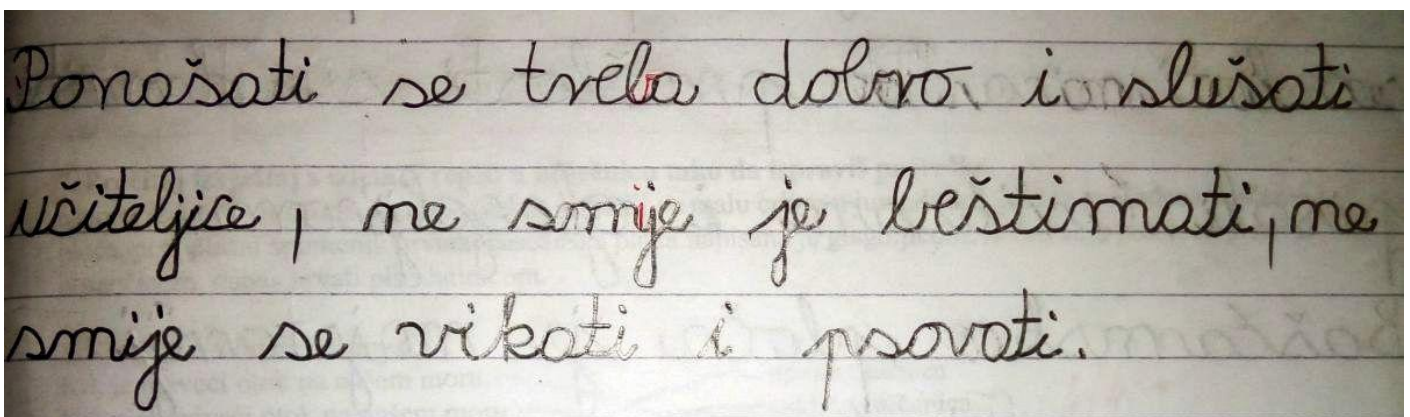 Ponašati se treba dobro i slušati
učiteljice, ne smije je beštimati, ne
smije se vikati i psovati.